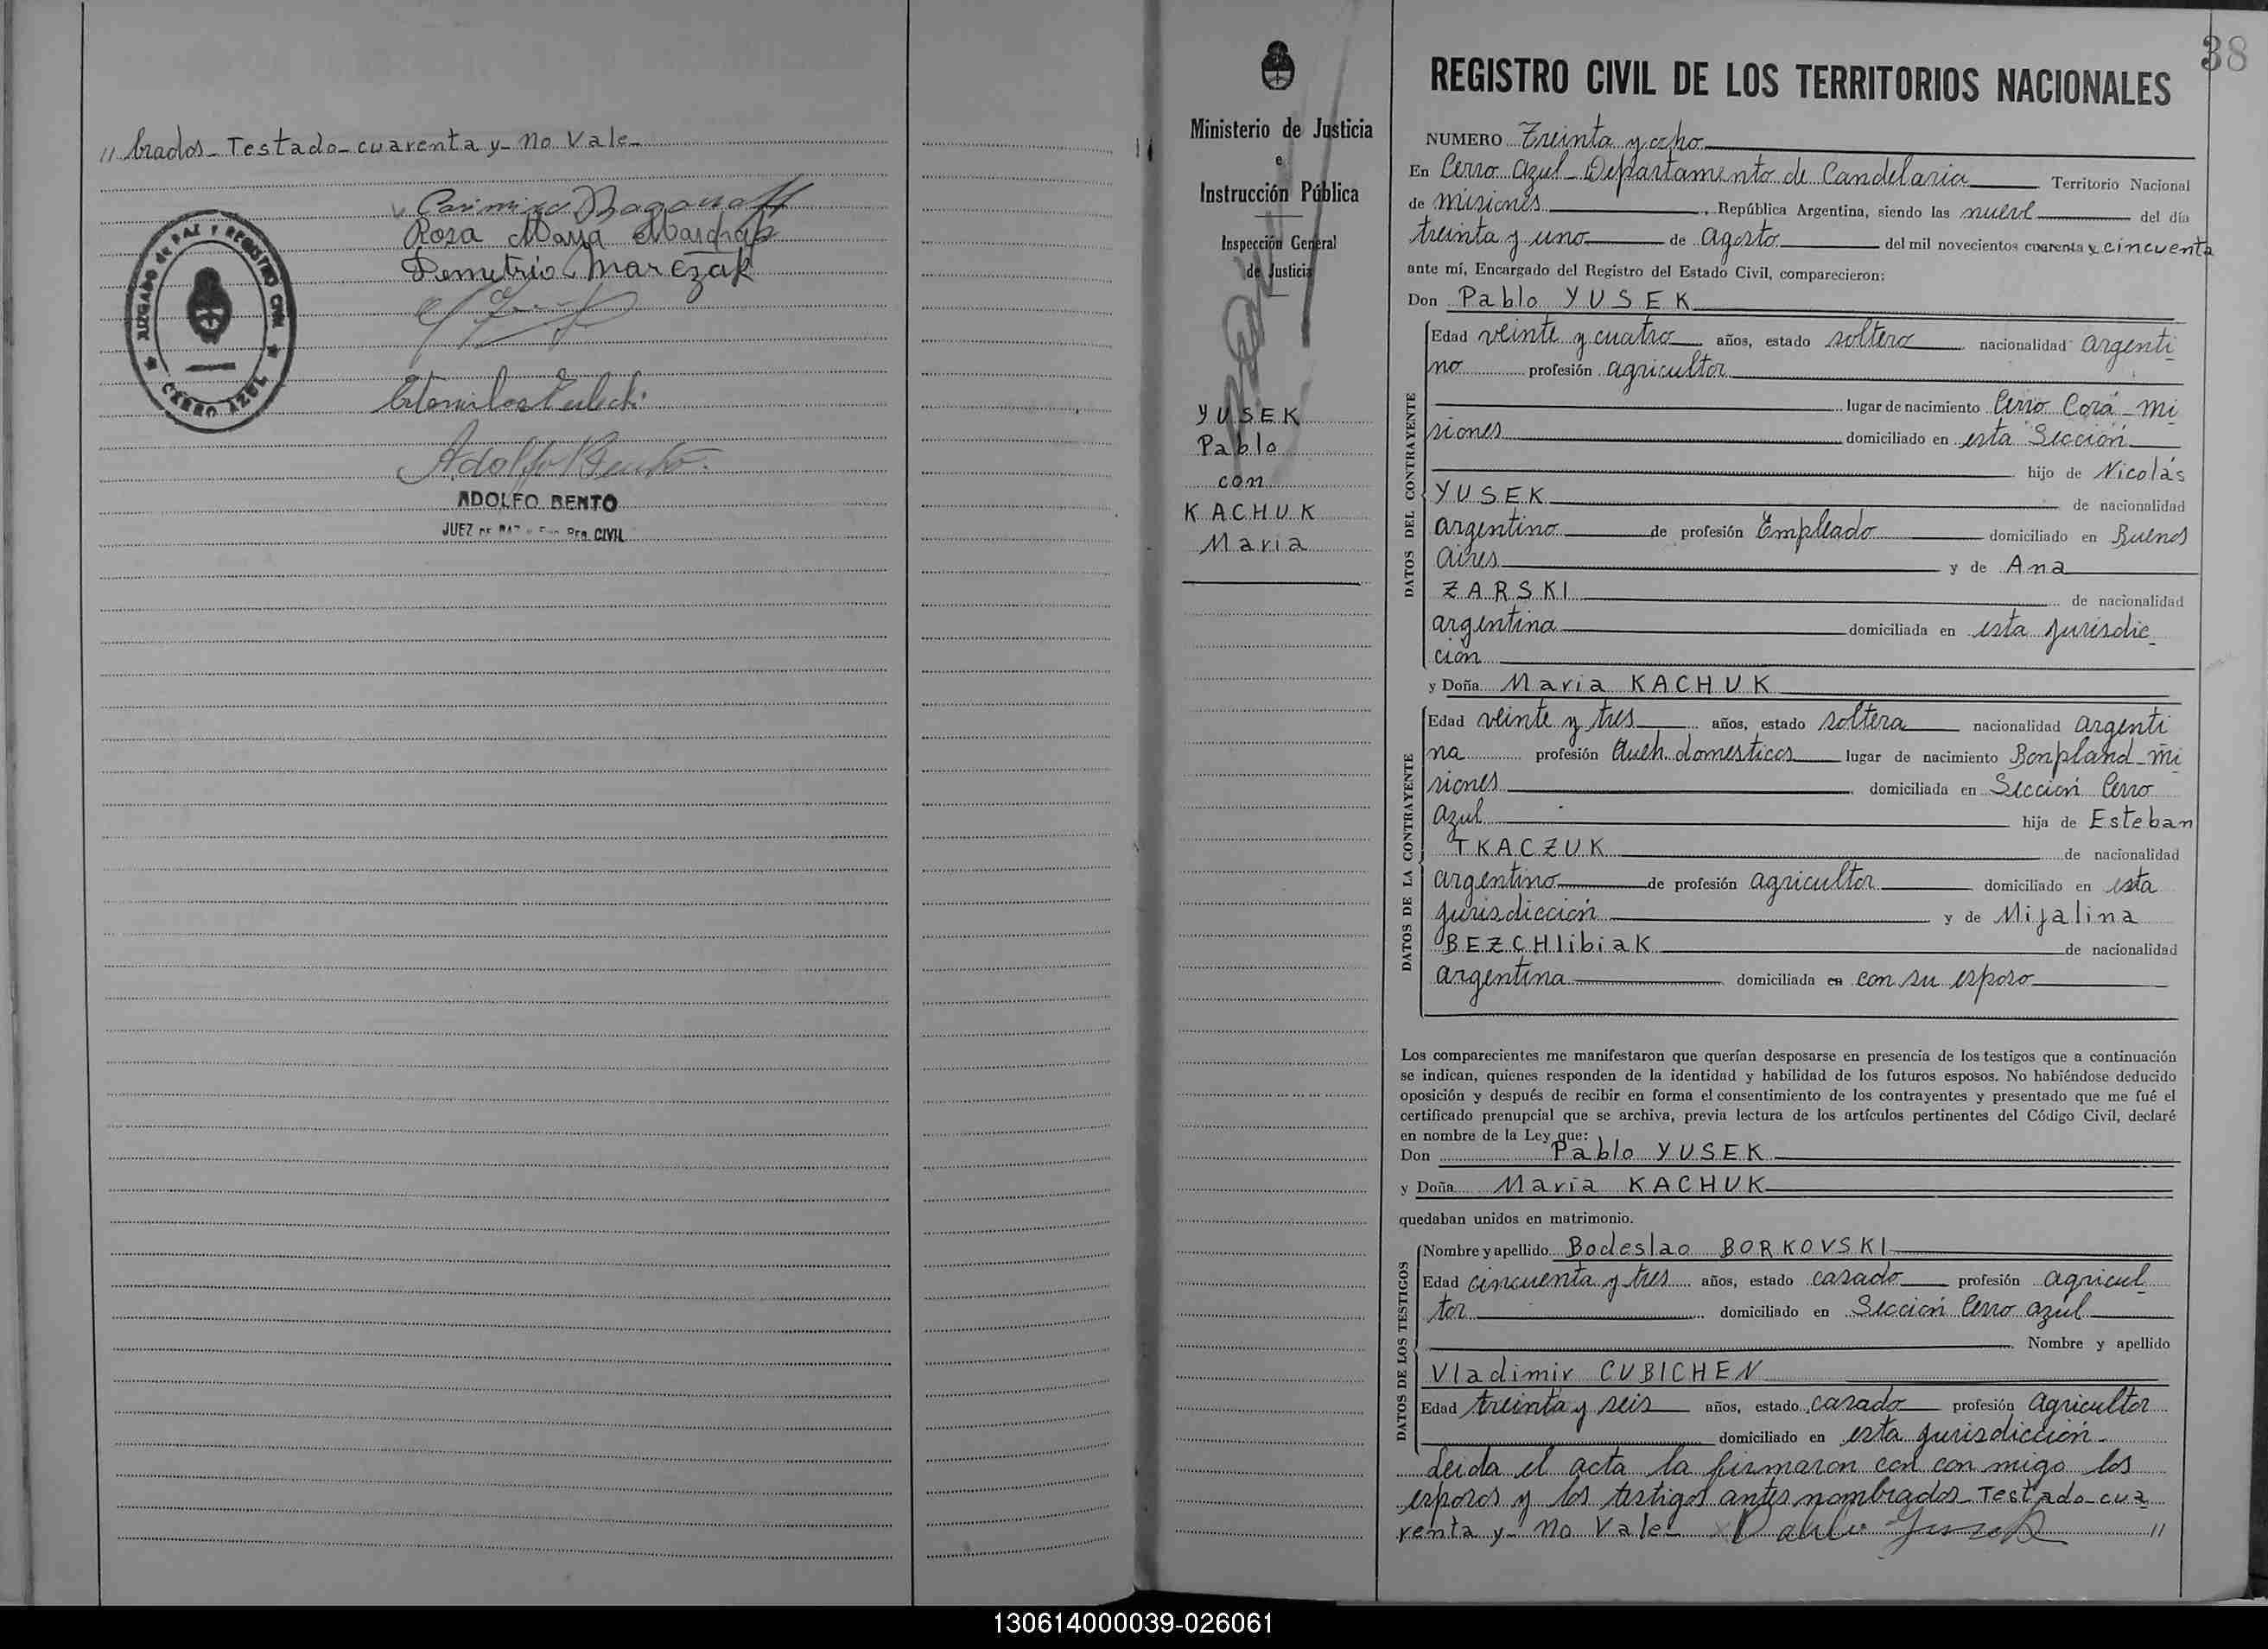 // brados_ Testado_cuarenta y_ no Vale_
Rosa Maria
Demetrio Marczak
JUZGADO de PAZ Y REGISTRO CIVIL
CERRO AZUL
Adolfo Bento.
ADOLFO BENTO
JUEZ DE PAZ REG. CIVIL
Ministerio de Justicia
e
Instrucción Pública
Inspección General
de Justicia
YUSEK
Pablo
con
KACHUK
Maria
38
REGISTRO CIVIL DE LOS TERRITORIOS NACIONALES
NUMERO Treinta y ocho
En Cerro Azul_Departamento de Candelaria Territorio Nacional
de misiones, República Argentina, siendo las nueve del día
treinta y uno de agosto del mil novecientos cuarenta y cincuenta
ante mí, Encargado del Registro del Estado Civil, comparecieron:
Don Pablo YUSEK
DATOS DEL CONTRAYENTE
Edad veinte y cuatro años, estado soltero nacionalidad argenti_
no profesión agricultor
lugar de nacimiento Cerro Corá_mi_
siones domiciliado en esta Sección
hijo de Nicolás
YUSEK de nacionalidad
argentino de profesión Empleado domiciliado en Buenos
Aires y de Ana
ZARSKI de nacionalidad
argentina domiciliada en esta jurisdic_
ción
y Doña Maria KACHUK
DATOS DE LA CONTRAYENTE
Edad veinte y tres años, estado soltera nacionalidad argenti
na profesión Queh. domesticos lugar de nacimiento Bonpland_mi_
siones domiciliada en Sección Cerro
Azul hija de Esteban
TKACZUK de nacionalidad
argentino de profesión agricultor domiciliado en esta
jurisdicción y de Mijalina
BEZCHlibiaK de nacionalidad
argentina domiciliada en con su esposo
Los comparecientes me manifestaron que querían desposarse en presencia de los testigos que a continuación
se indican, quienes responden de la identidad y habilidad de los futuros esposos. No habiéndose deducido
oposición y después de recibir en forma el consentimiento de los contrayentes y presentado que me fué el
certificado prenupcial que se archiva, previa lectura de los artículos pertinentes del Código Civil, declaré
en nombre de la Ley que:
Don Pablo YUSEK
y Doña Maria KACHUK
quedaban unidos en matrimonio.
DATOS DE LOS TESTIGOS
Nombre y apellido Bodeslao BORKOVSKI
Edad cincuenta y tres años, estado casado profesión agricul_
tor domiciliado en Sección Cerro Azul
Nombre y apellido
Vladimir CUBICHEN
Edad treinta y seis años, estado casado profesión agricultor
domiciliado en esta jurisdicción_
Leida el acta la firmaron con con migo los
esposos y los testigos antes nombrados_Testado_cua_
renta y_ no Vale_ Pablo Yusek //
130614000039-026061